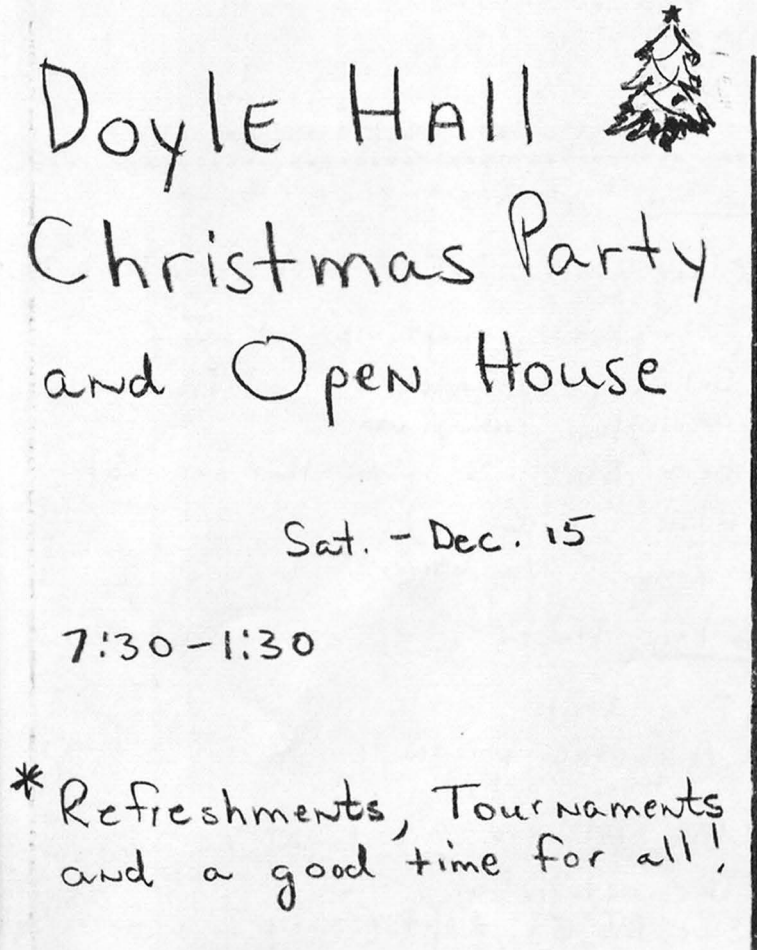 Doyle Hall
Christmas Party
and Open House
Sat. - Dec. 15
7:30-1:30
* Refreshments, Tournaments
and a good time for all!